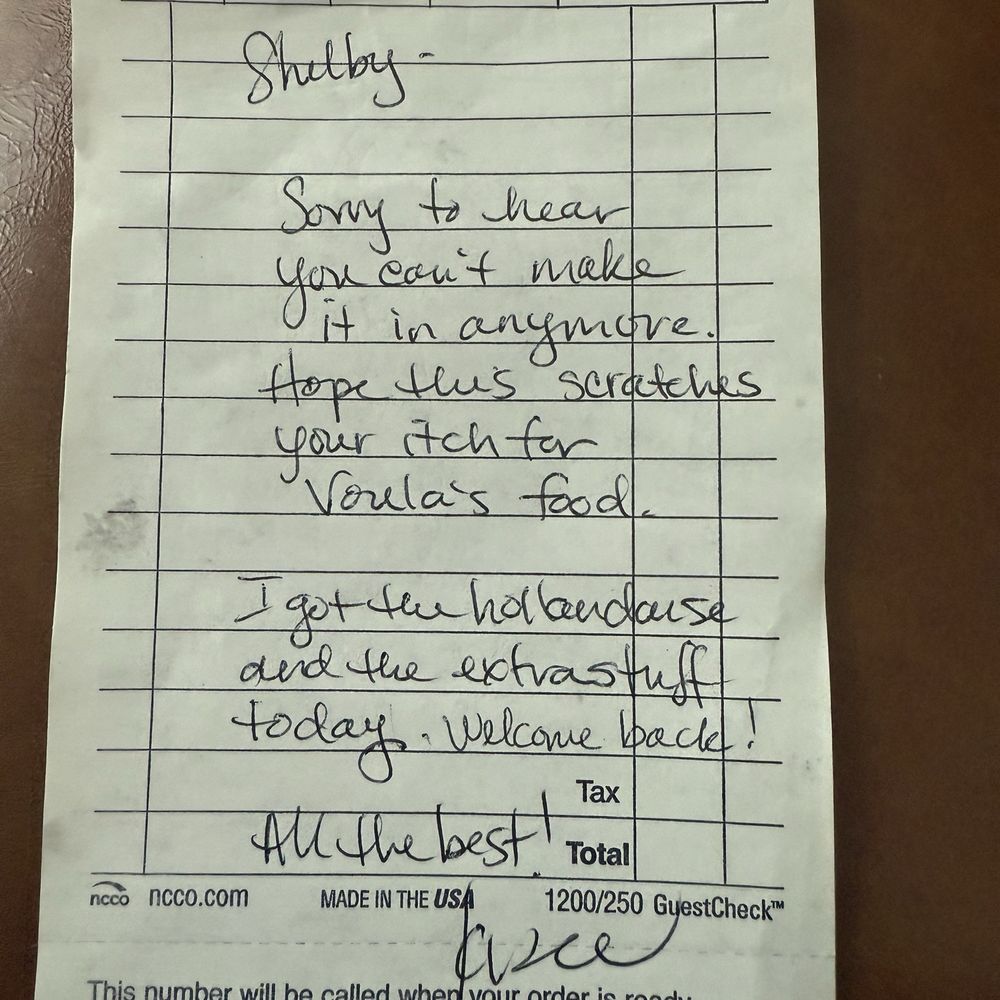 Shelby -
Sorry to hear
you can't make
it in anymore.
Hope this scratches
your itch for
Voula's food.
I got the hollandause
and the extra stuff
today. Welcome back!
Tax
All the best! Total
ncco ncco.com MADE IN THE USA 1200/250 GuestCheck™
This number will be called when your order is ready.